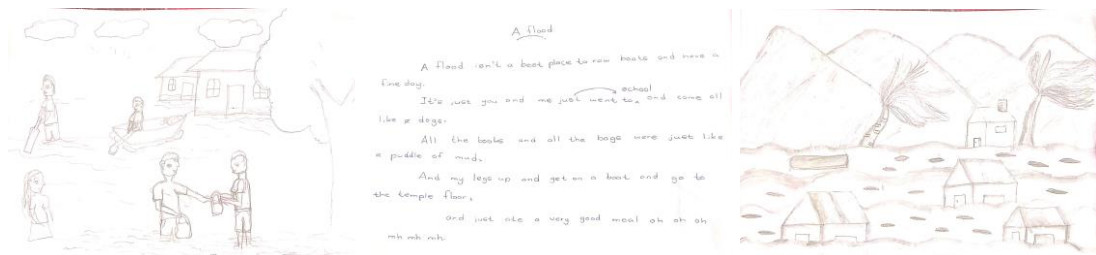 A flood
A flood isn't a best place to row boats and have a
fine day.
It's just you and me just went to school, and come all
like a dogs.
All the boots and all the bags were just like
a puddle of mud,
And my legs up and get on a boat and go to
the temple floor,
and just ate a very good meal oh oh oh
mh mh mh.